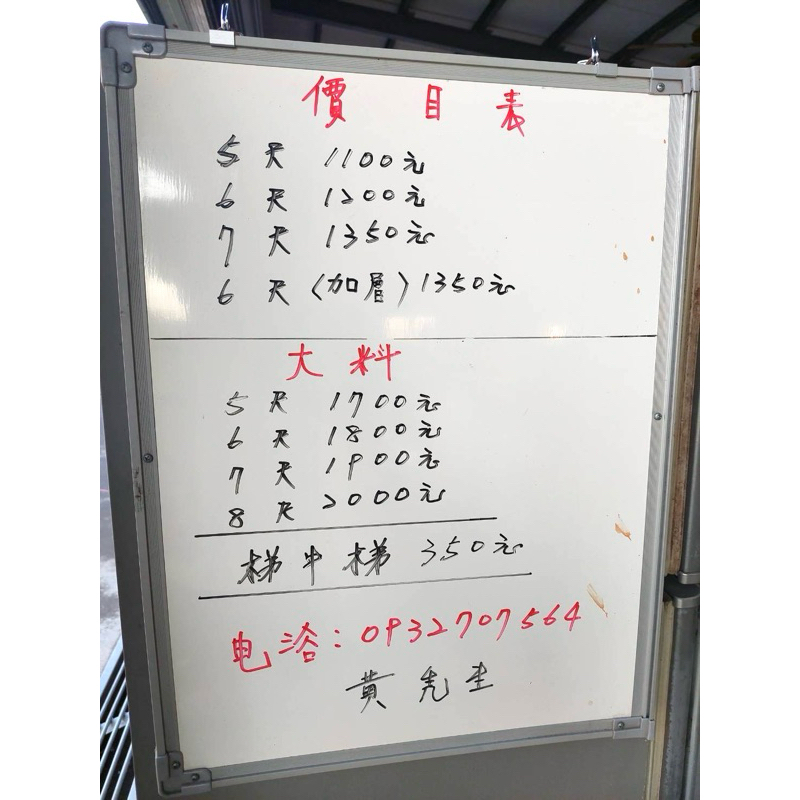 價目表
5尺 1100元
6尺 1200元
7尺 1350元
6尺(加層)1350元
大料
5尺 1700元
6尺 1800元
7尺 1900元
8尺 2000元
梯中梯 350元
电洽:0932707564
黃先生